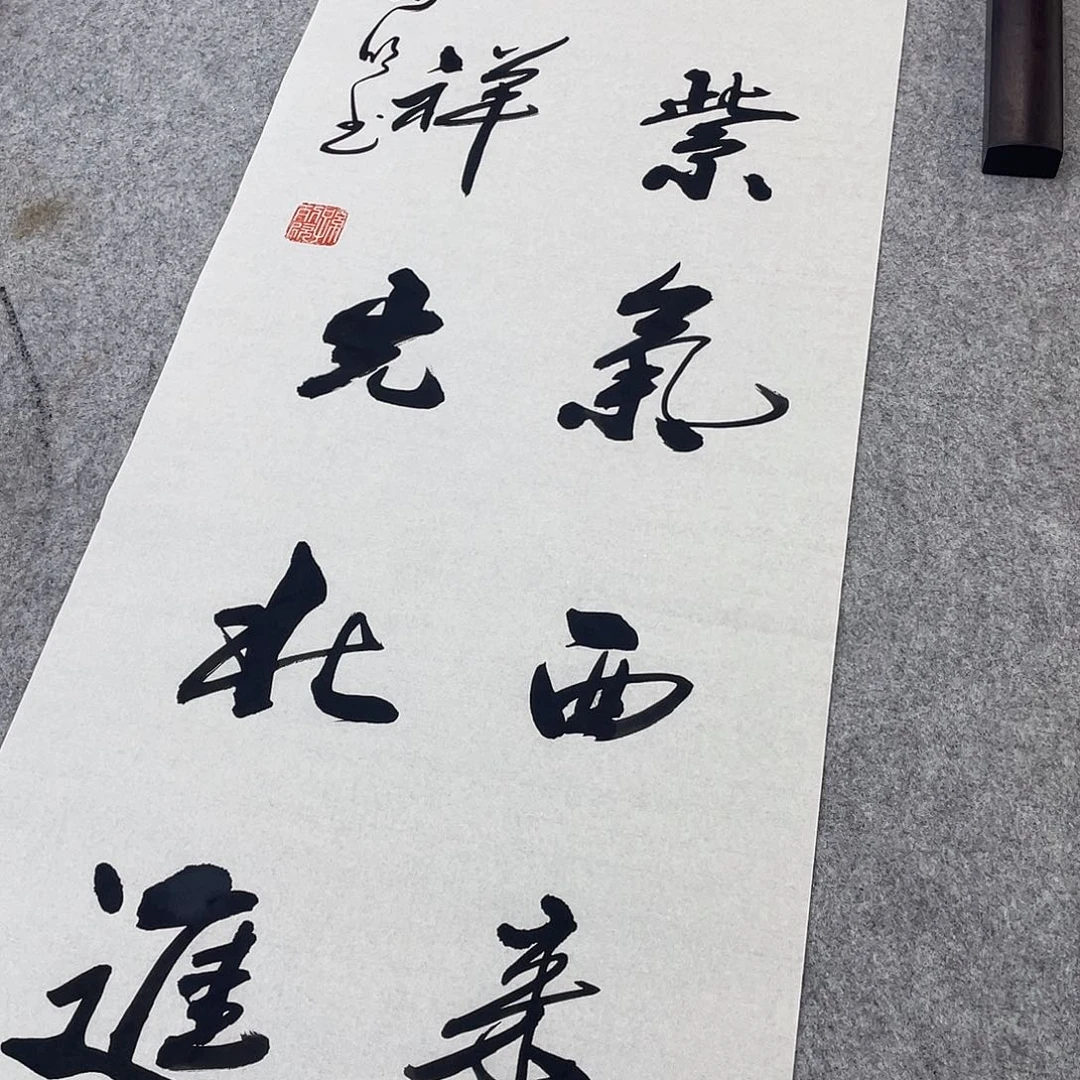 紫氣西來
祥光北進